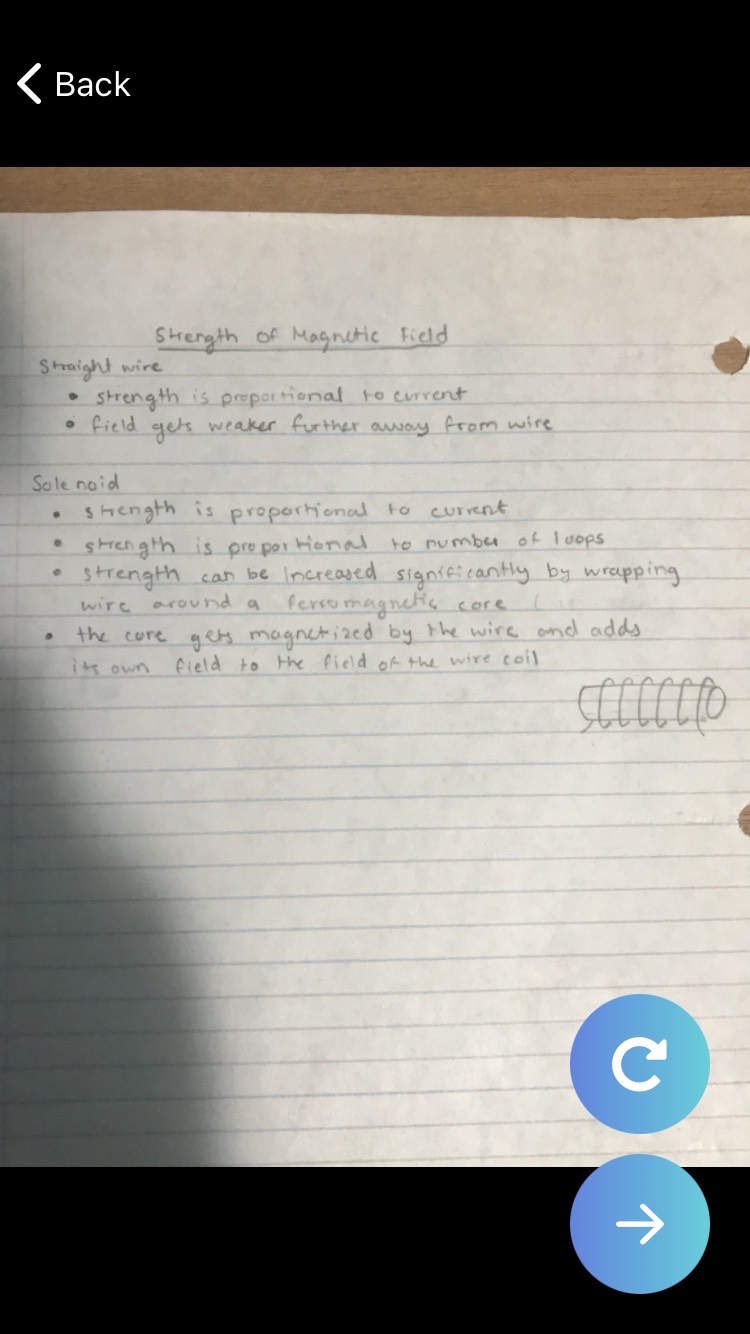 Back
Strength of Magnetic Field
Straight wire
• strength is proportional to current
• field gets weaker further away from wire
Solenoid
• strength is proportional to current
• strength is proportional to number of loops
• strength can be increased significantly by wrapping
wire around a ferromagnetic core (
• the core gets magnetized by the wire and adds
its own field to the field of the wire coil